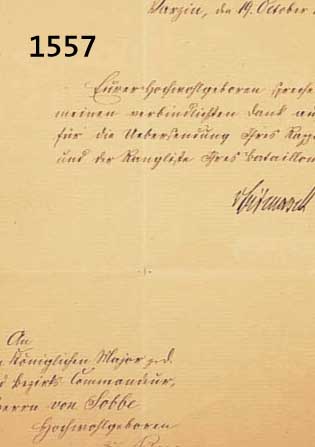 Varzin, den 19. October
1557
Euer Hochwohlgeboren spreche
meinen verbindlichsten Dank au
für die Uebersendung Ihres Rapp
und der Rangliste Ihres Bataillon
v Bismarck
An
Königlichen Major z. D.
Bezirks Commandeur,
Herrn von Sobbe
Hochwohlgeboren